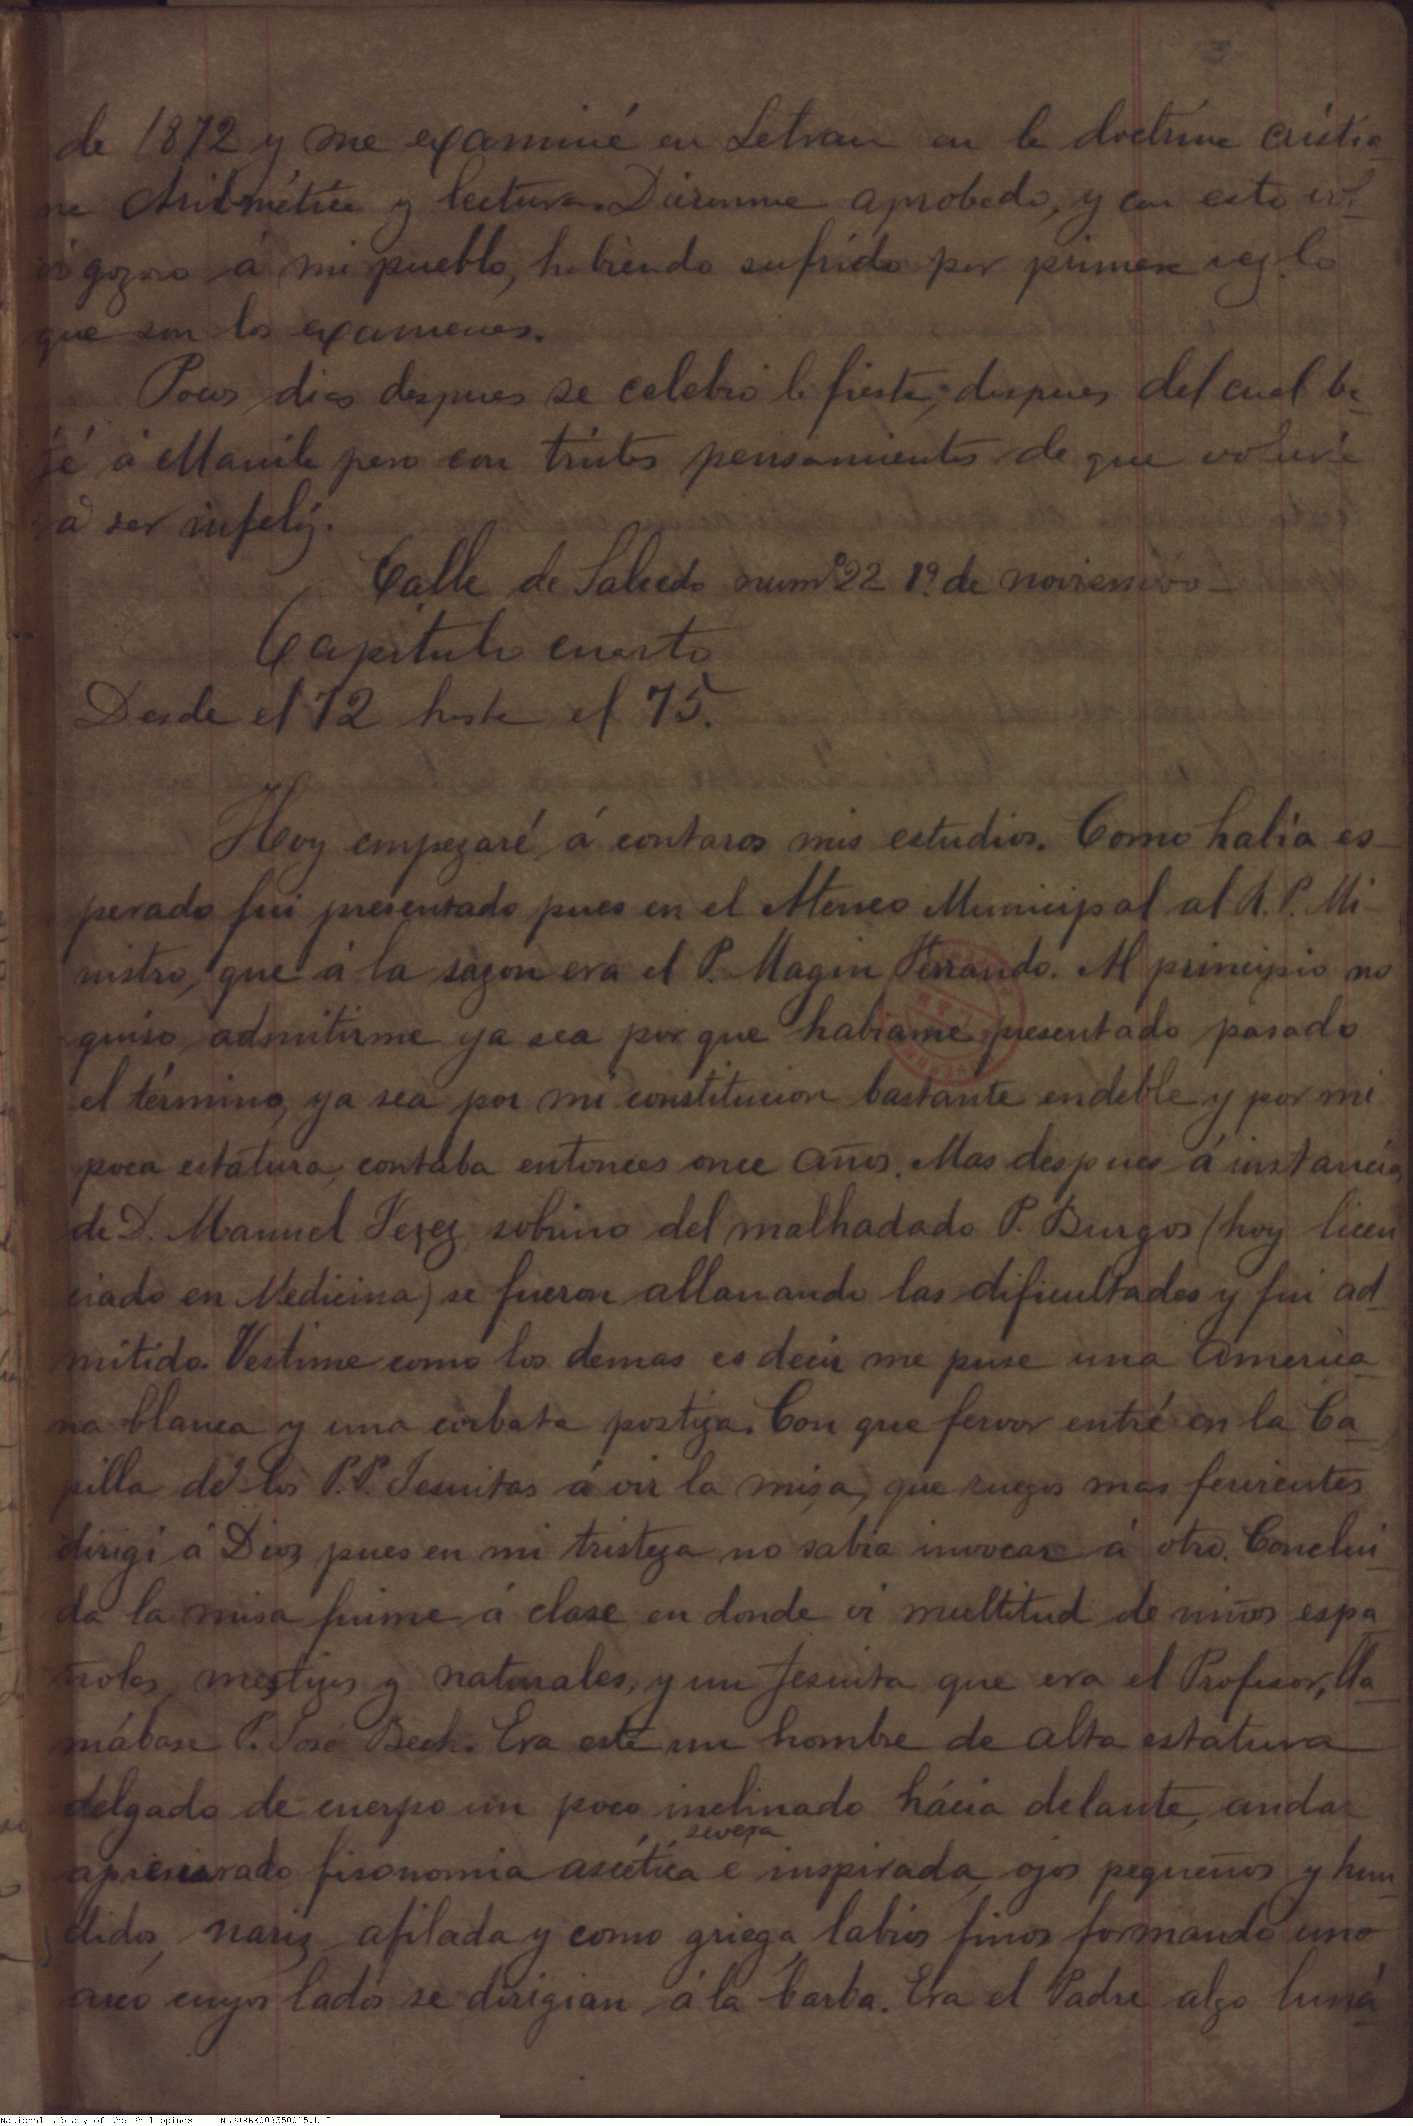 de 1872 y me examiné en Letran en la doctrina cristia-
na Aritmética y lectura. Diéronme aprobado, y con esto vol-
ví gozoso á mi pueblo, habiendo sufrido por primera vez lo
que son los examenes.
Pocos dias despues se celebró la fiesta, despues del cual ba-
jé á Manila pero con tristes pensamientos de que volveré
á ser infeliz.
Calle de Salcedo num.º 22 1º de noviembre
Capitulo cuarto
Desde el 72 hasta el 75.
Hoy empezaré á contaros mis estudios. Como habia es-
perado fui presentado pues en el Ateneo Municipal al R. P. Mi-
nistro, que á la sazon era el P. Magin Ferrando. Al principio no
quiso admitirme ya sea por que habiame presentado pasado
el término, ya sea por mi constitucion bastante endeble y por mi
poca estatura, contaba entonces once años. Mas despues á instancia
de D. Manuel Xerez sobrino del malhadado P. Burgos (hoy licen
ciado en Medicina) se fueron allanando las dificultades y fui ad-
mitido. Vestime como los demas es decir me puse una America-
na blanca y una corbata postiza. Con que fervor entré en la Ca-
pilla de los P.P. Jesuitas á oir la misa, que ruegos mas fervientes
dirigi á Dios pues en mi tristeza no sabia invocar á otro. Conclui-
da la misa fuime á clase en donde vi multitud de niños espa-
ñoles, mestizos y naturales, y un Jesuita que era el Profesor, lla-
mábase P. José Bech. Era este un hombre de alta estatura
delgado de cuerpo un poco inclinado hácia delante, andar
severa
apresurado fisonomia ascética e inspirada, ojos pequeños y hun-
didos, nariz afilada y como griega, labios finos formando uno
arco cuyos lados se dirigian á la barba. Era el Padre algo luná-
National Library of the Philippines